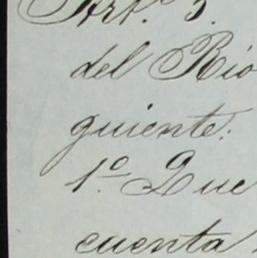 Art.º 3.
del Rio
guiente:
1º. Que
cuenta